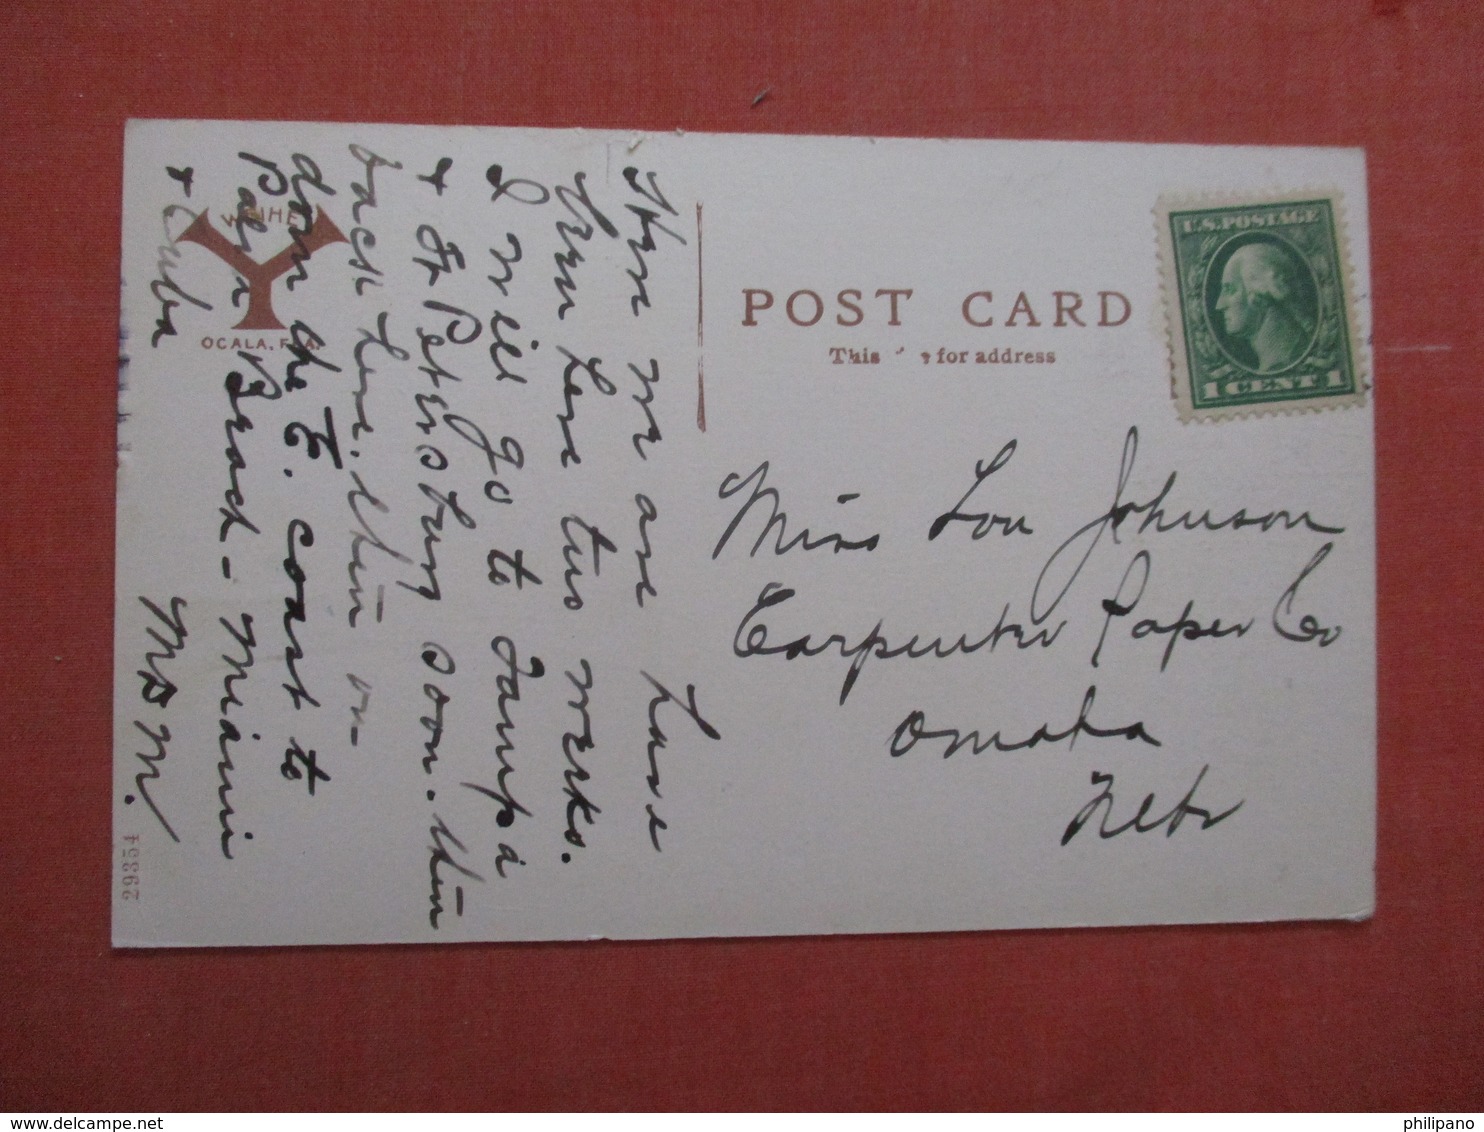 Here we are have
been here two weeks.
I will go to Tampa
& St Petersburg soon. then
back here. then on-
down the E. coast to
Palm Beach - Miami
& Cuba
M M.
WEIHE
OCALA, FLA.
29354
POST CARD
This for address
U.S. POSTAGE
1 CENT 1
Miss Lou Johnson
Carpenter Paper Co
Omaha
Nebr
philipano